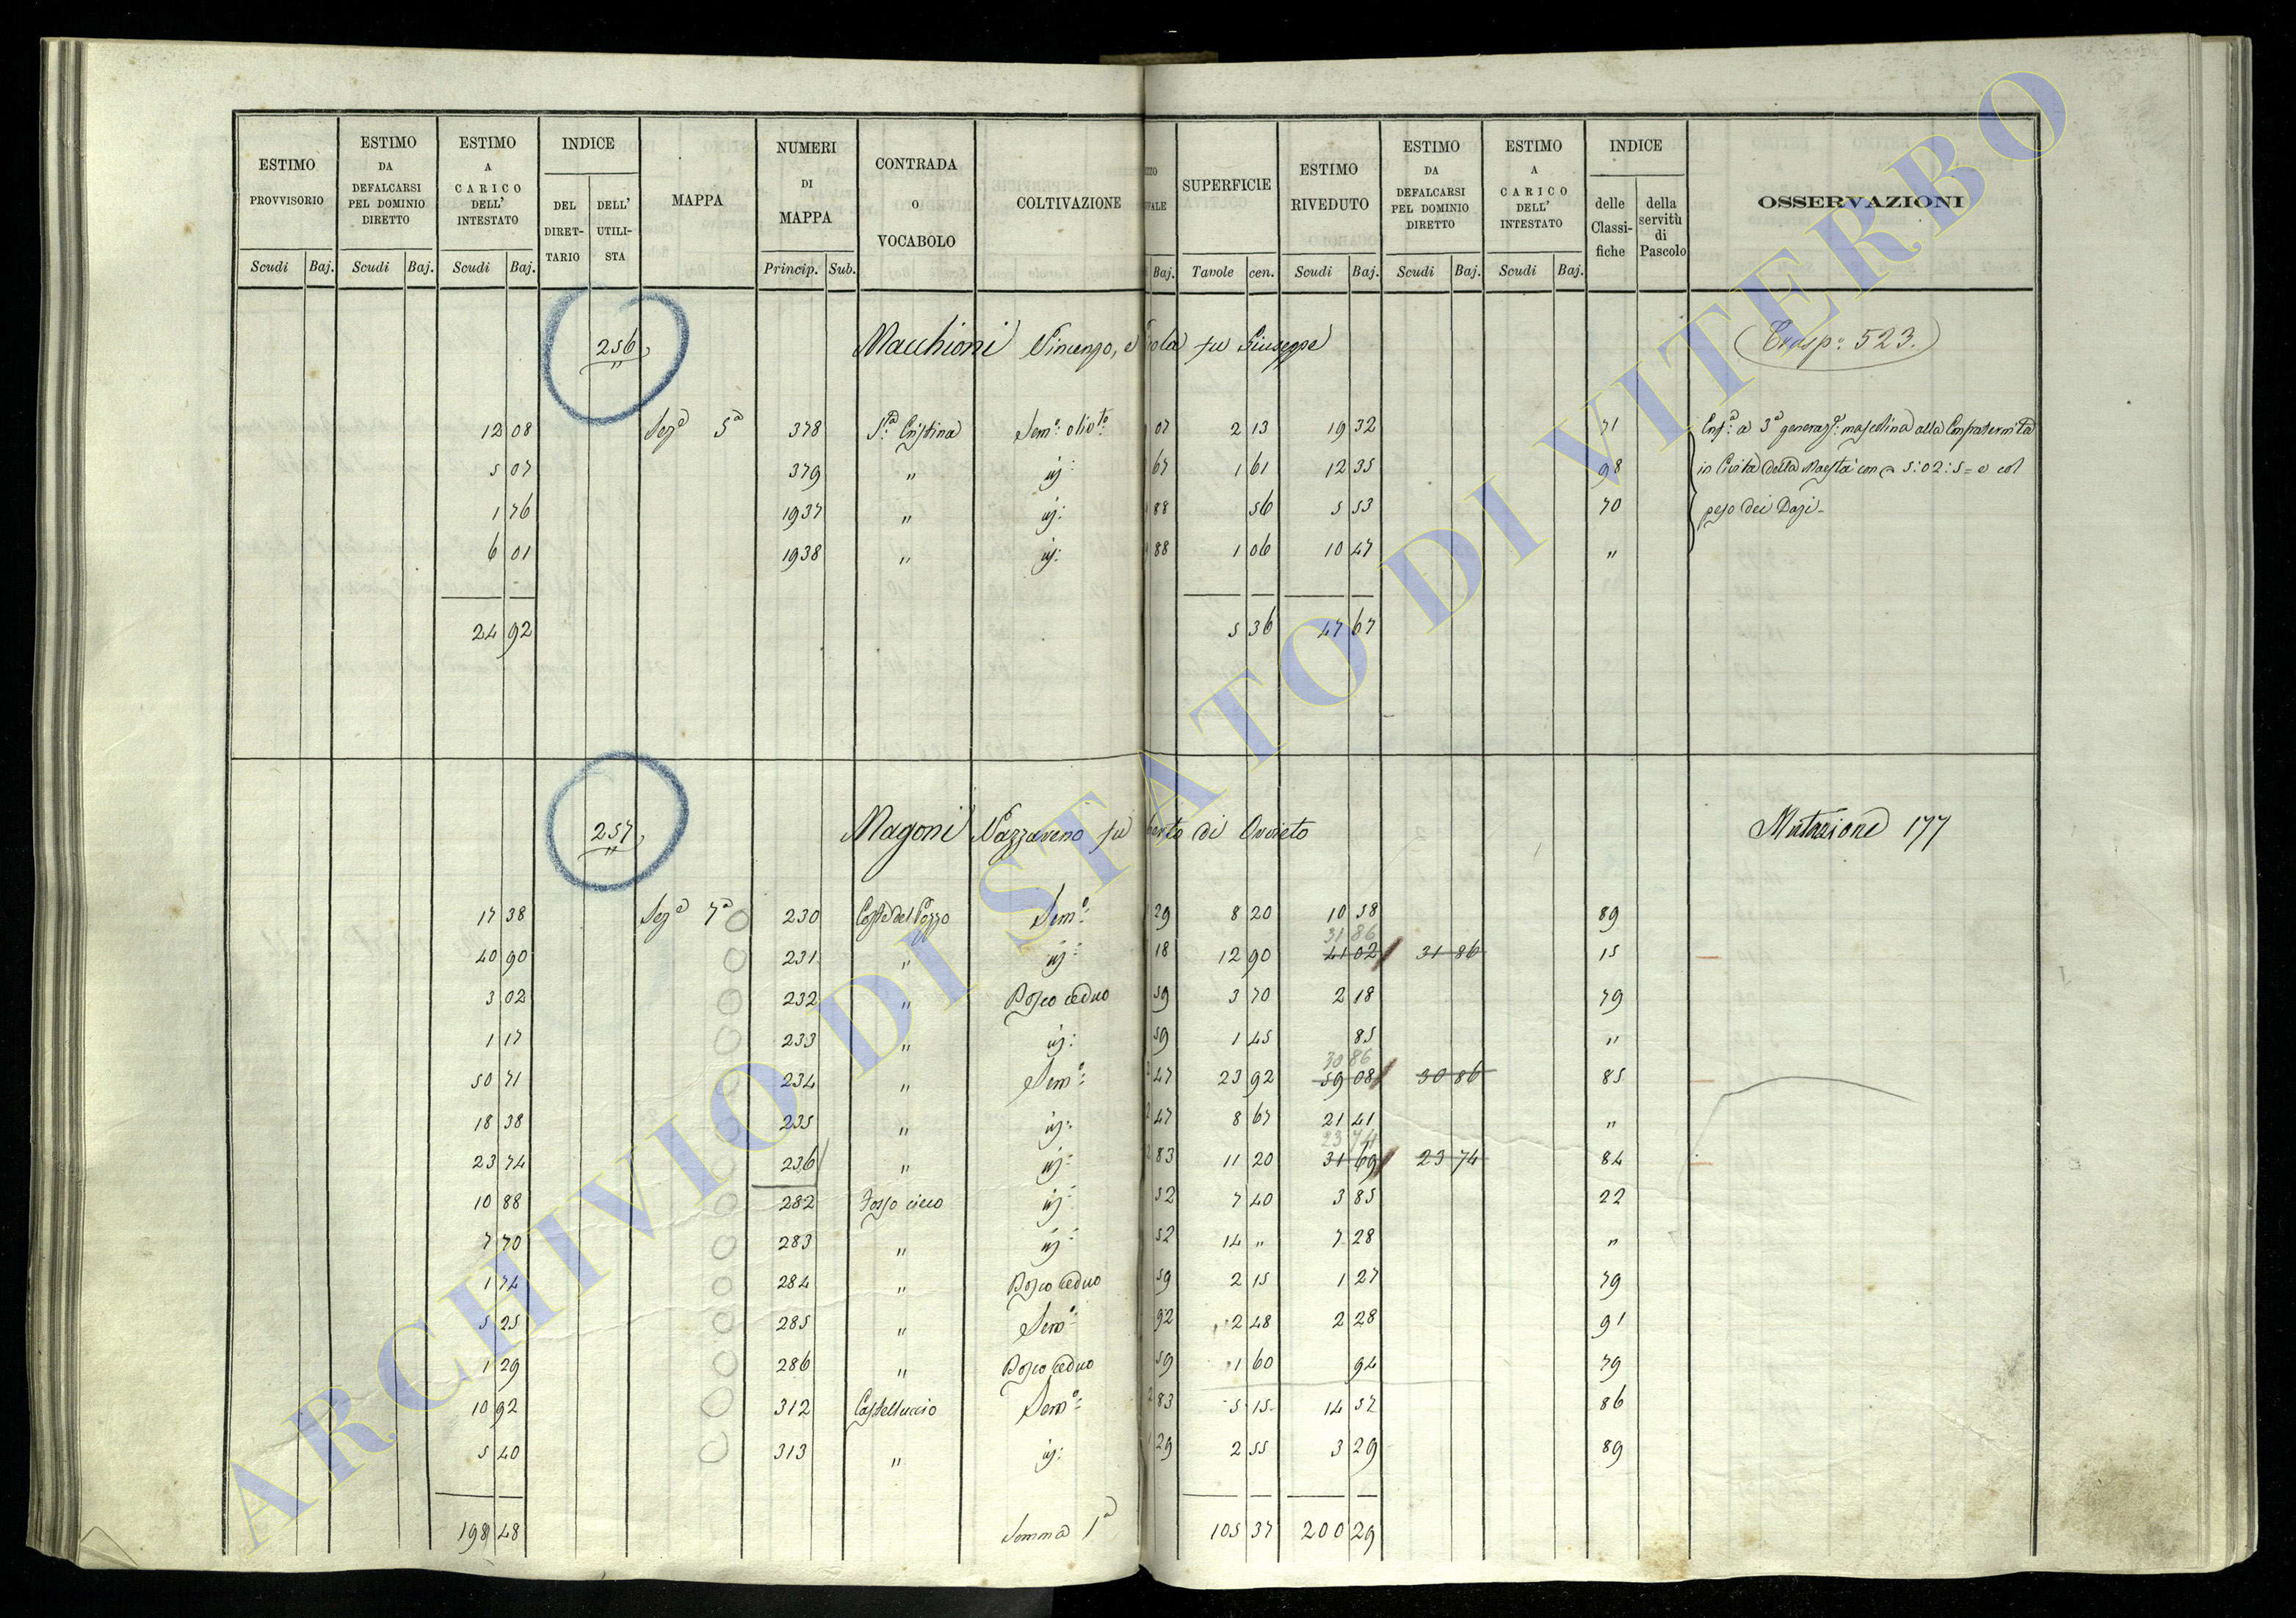 ESTIMO PROVVISORIO | ESTIMO DA DEFALCARSI PEL DOMINIO DIRETTO | ESTIMO A CARICO DELL' INTESTATO | INDICE DEL DIRETTARIO | DELL' UTILISTA | MAPPA | NUMERI DI MAPPA | CONTRADA O VOCABOLO | COLTIVAZIONE | SUPERFICIE | ESTIMO RIVEDUTO | ESTIMO DA DEFALCARSI PEL DOMINIO DIRETTO | ESTIMO A CARICO DELL' INTESTATO | INDICE delle Classifiche | della servitù di Pascolo | OSSERVAZIONI
Scudi Baj. Scudi Baj. Scudi Baj. Princip. Sub. Baj. Tavole cen. Scudi Baj. Scudi Baj. Scudi Baj.
256 Macchioni Vincenzo, e fu Giuseppe Trasp: 523.
12 08 Seza 5a 378 S:ta Cristina Sem: olivto: 07 2 13 19 32 71
5 07 379 " ij: 67 1 61 12 35 98
1 76 1937 " ij: 88 56 5 53 70
6 01 1938 " ij: 88 1 06 10 47 "
Enfa: a 3a generaz: mascolina alla Confraternita
in Civita della Maestà con 5:02:5= e col
peso dei Dazi-
24 92 5 36 47 67
257 Magoni Nazzareno fu di Orvieto Mutazione 177
17 38 Seza 7a 230 Coste del Pozzo Semo: 29 8 20 10 58 89
31 86
40 90 231 " ij: 18 12 90 41 02 31 86 15
3 02 232 " Bosco ceduo 59 3 70 2 18 79
1 17 233 " ij: 59 1 45 85 "
30 86
50 71 234 " Semo: 47 23 92 59 08 30 86 85
18 38 235 " ij: 47 8 67 21 41 "
23 74
23 74 236 " ij: 83 11 20 31 69 23 74 84
10 88 282 Fosso cieco ij: 52 7 40 3 85 22
7 70 283 " ij: 52 14 " 7 28 "
1 74 284 " Bosco ceduo 59 2 15 1 27 79
5 25 285 " Semo: 92 2 48 2 28 91
1 29 286 " Bosco ceduo 59 1 60 94 79
10 92 312 Castelluccio Semo: 83 5 15 14 57 86
5 40 313 " ij: 29 2 55 3 29 89
198 48 Somma 1a 105 37 200 29
ARCHIVIO DI STATO DI VITERBO